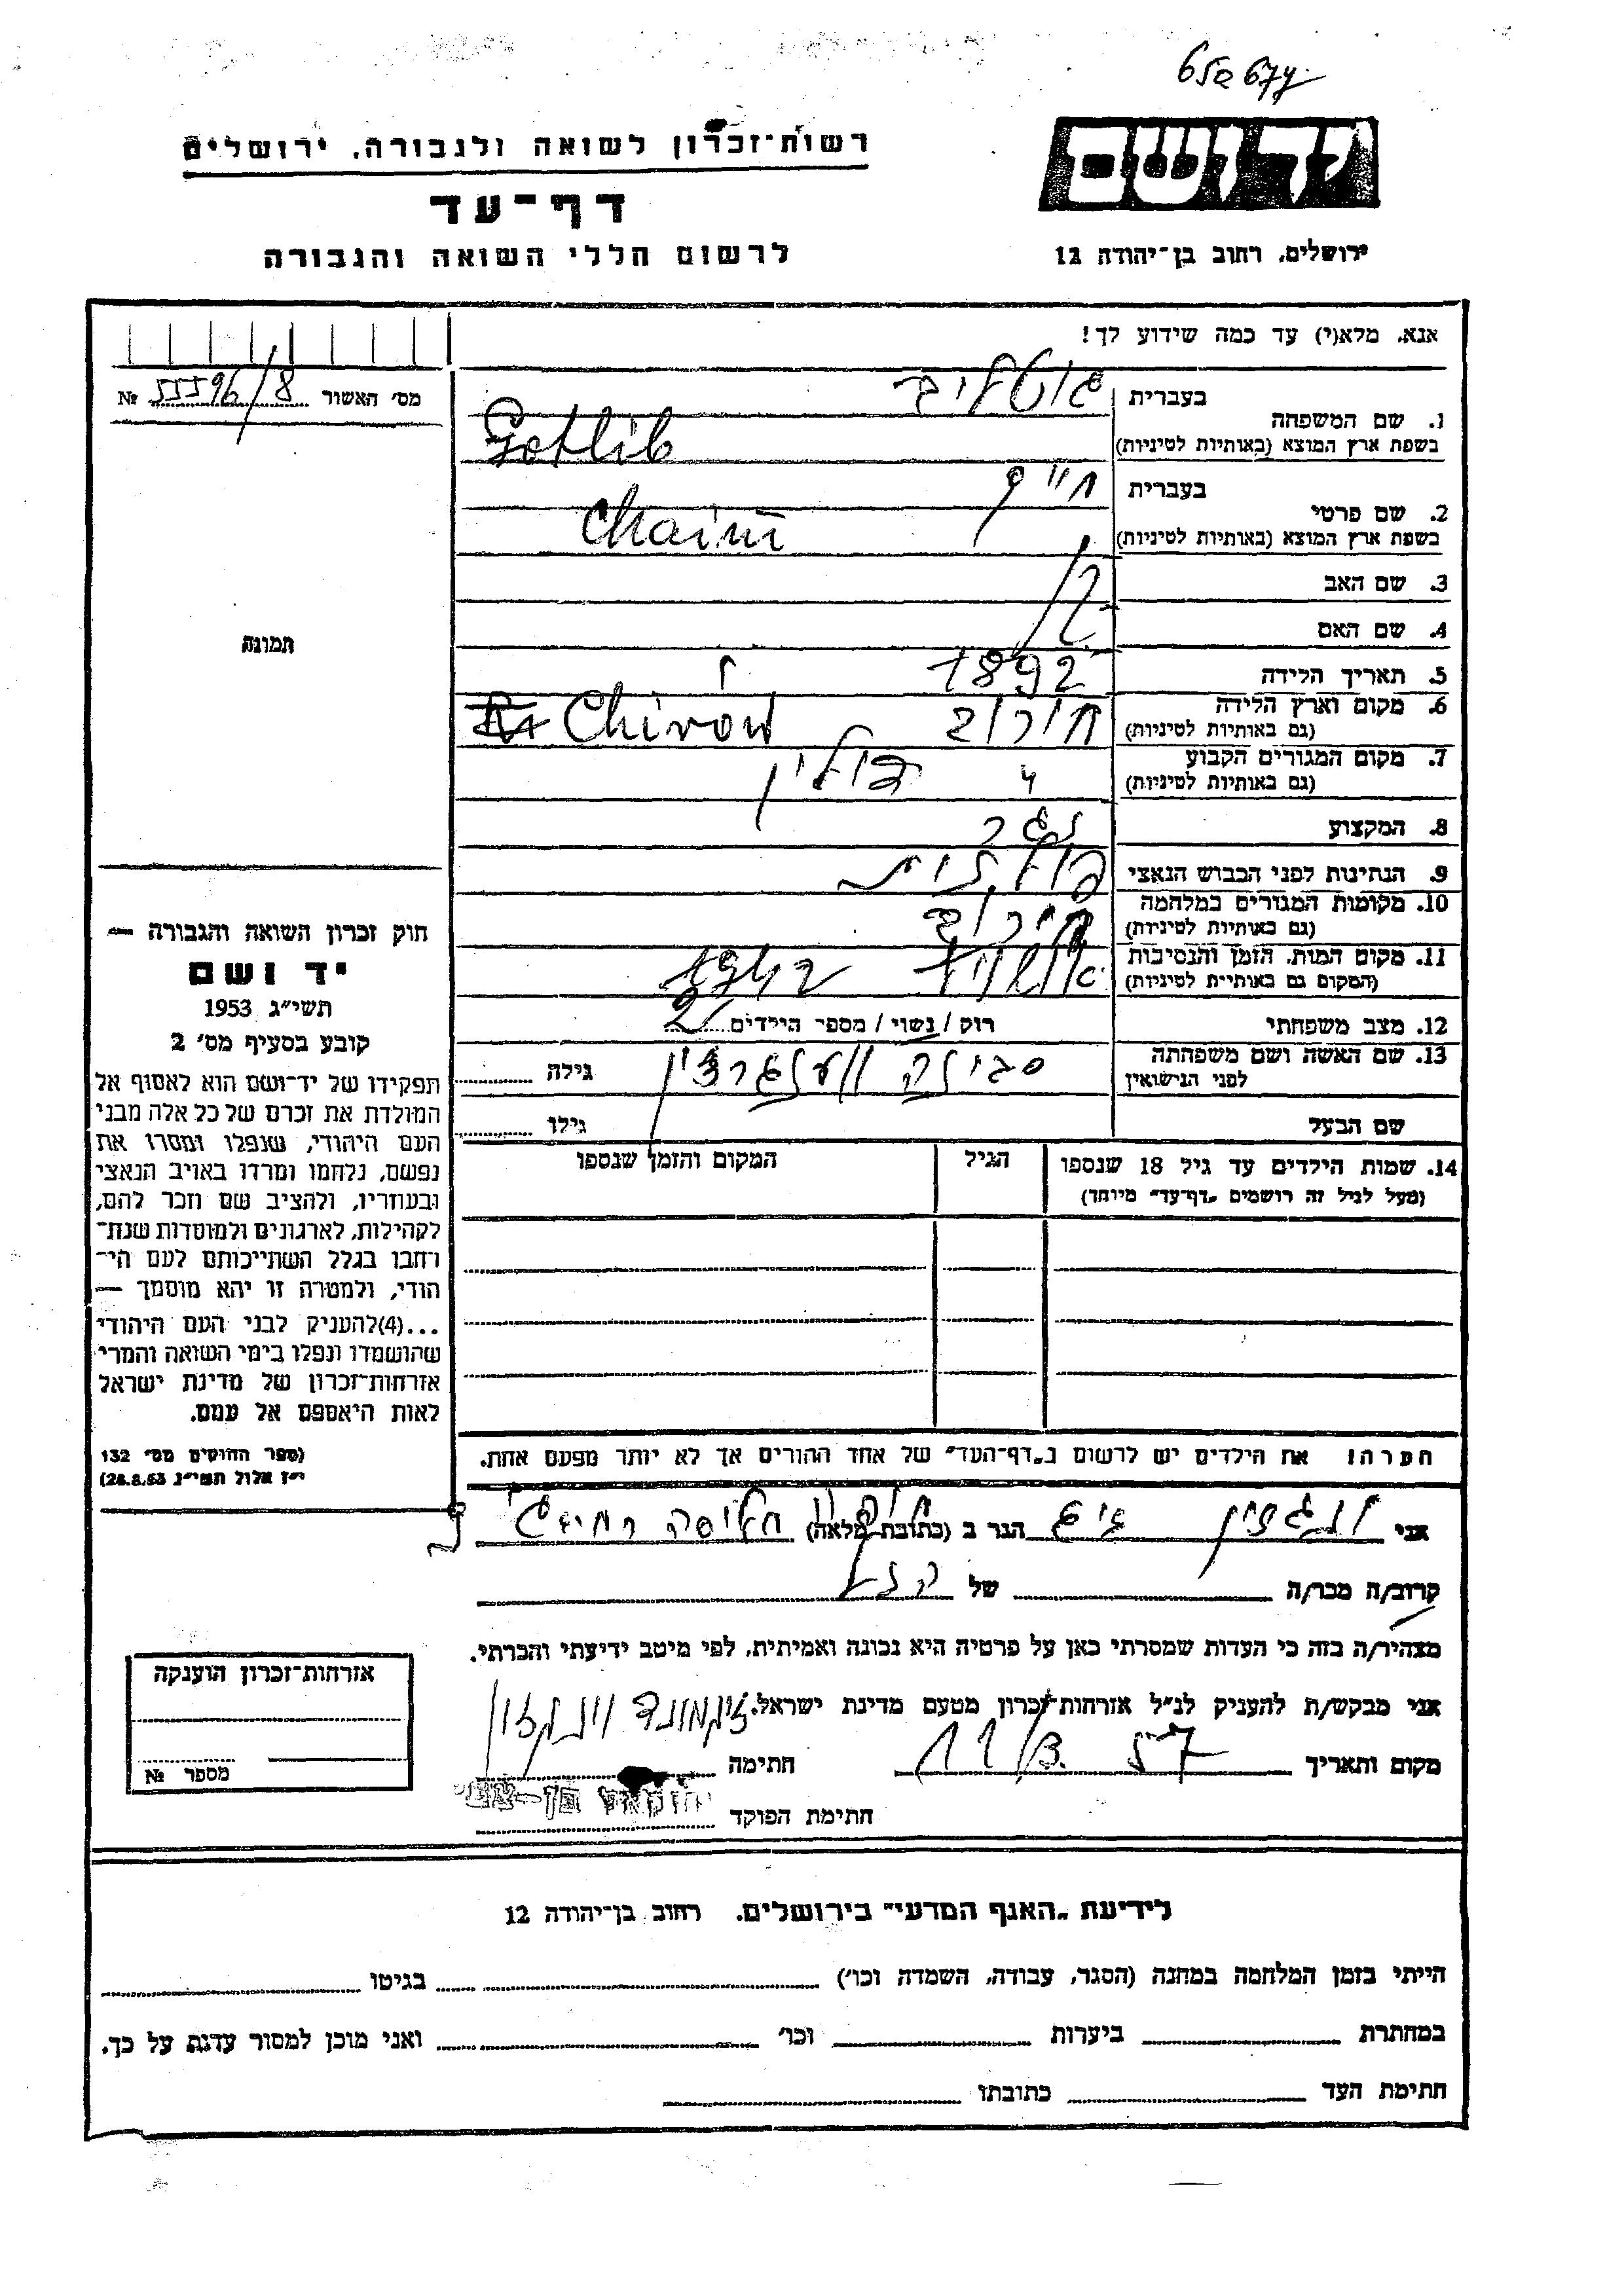 רשות־זכרון לשואה ולגבורה, ירושלים
יד ושם
דף־עד
לרשום חללי השואה והגבורה
ירושלים, רחוב בן־יהודה 12
אנא, מלא(י) עד כמה שידוע לך!
מס׳ האשור 55596/8 №
בעברית גוטליב
1. שם המשפחה
בשפת ארץ המוצא (באותיות לטיניות) Gotlib
בעברית חיים
2. שם פרטי
בשפת ארץ המוצא (באותיות לטיניות) Chaim
3. שם האב
4. שם האם
5. תאריך הלידה 1892
6. מקום וארץ הלידה
(גם באותיות לטיניות) Chirow
7. מקום המגורים הקבוע
(גם באותיות לטיניות) פולין
8. המקצוע
9. הנתינות לפני הכבוש הנאצי פולנית
10. מקומות המגורים במלחמה
(גם באותיות לטיניות)
11. מקום המות, הזמן והנסיבות
(המקום גם באותיות לטיניות) 1942
12. מצב משפחתי רוק / נשוי / מספר הילדים 2
13. שם האשה ושם משפחתה
לפני הנישואין גילה
שם הבעל גילו
14. שמות הילדים עד גיל 18 שנספו הגיל המקום והזמן שנספו
(מעל לגיל זה רושמים „דף־עד״ מיוחד)
הערה: את הילדים יש לרשום ב„דף־העד״ של אחד ההורים אך לא יותר מפעם אחת.
תמונה
חוק זכרון השואה והגבורה —
יד ושם
תשי״ג 1953
קובע בסעיף מס׳ 2
תפקידו של יד־ושם הוא לאסוף אל
המולדת את זכרם של כל אלה מבני
העם היהודי, שנפלו ומסרו את
נפשם, נלחמו ומרדו באויב הנאצי
ובעוזריו, ולהציב שם וזכר להם,
לקהילות, לארגונים ולמוסדות שנח־
רבו בגלל השתייכותם לעם הי־
הודי, ולמטרה זו יהא מוסמך —
...(4)להעניק לבני העם היהודי
שהושמדו ונפלו בימי השואה והמרי
אזרחות־זכרון של מדינת ישראל
לאות היאספם אל עמם.
(ספר החוקים מס׳ 132
י״ז אלול תשי״ג 28.8.53)
אני הגר ב (כתובת מלאה)
קרוב/ה מכר/ה של
מצהיר/ה בזה כי העדות שמסרתי כאן על פרטיה היא נכונה ואמיתית, לפי מיטב ידיעתי והכרתי.
אני מבקש/ת להעניק לנ״ל אזרחות־זכרון מטעם מדינת ישראל.
מקום ותאריך 11/3. 57 חתימה
חתימת הפוקד
אזרחות־זכרון הוענקה
מספר №
לידיעת „האגף המדעי״ בירושלים, רחוב בן־יהודה 12
הייתי בזמן המלחמה במחנה (הסגר, עבודה, השמדה וכו׳) בגיטו
במחתרת ביערות וכו׳ ואני מוכן למסור עדות על כך.
חתימת העד כתובתו